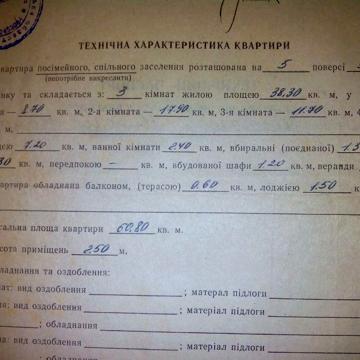 ТЕХНІЧНА ХАРАКТЕРИСТИКА КВАРТИРИ
квартира посімейного, спільного заселення розташована на 5 поверсі
(непотрібне викреслити)
нку та складається з: 3 кімнат жилою площею 38,30 кв. м, у
8,70 кв. м, 2-а кімната — 17,90 кв. м, 3-я кімната — 11,70 кв. м, 4
м,
цею 7,20 кв. м, ванної кімнати 2,40 кв. м, вбиральні (поєднаної) 1,5
30 кв. м, передпокою — кв. м, вбудованої шафи 1,20 кв. м, веранди
квартира обладнана балконом, (терасою) 0,60 кв. м, лоджією 1,50 к
гальна площа квартири 60,80 кв. м.
сота приміщень 2,50 м.
бладнання та оздоблення:
нат: вид оздоблення ; матерал підлоги
ня: вид оздоблення ; матеріал підлоги
; обладнання
на: вид оздоблення ; матеріал підлоги
; обладнання